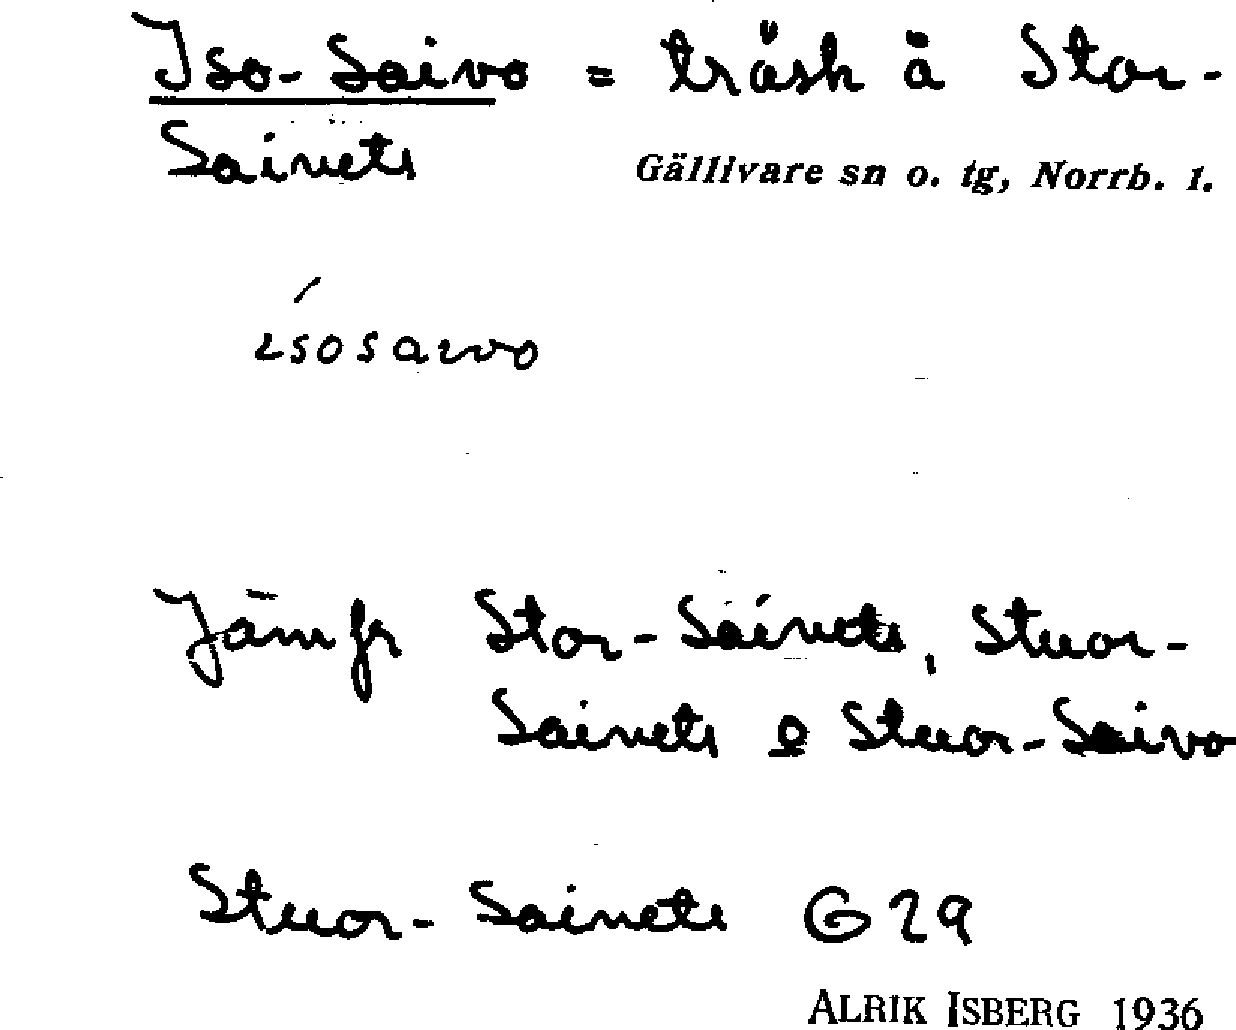 Iso-Saivo = träsk å Stor-
Saivets
Gällivare sn o. tg, Norrb. l.
ísosaivo
Jämfr Stor-Saivets, Stuor-
Saivets o Stuor-Saivo
Stuor-Saivets G29
ALRIK ISBERG 1936